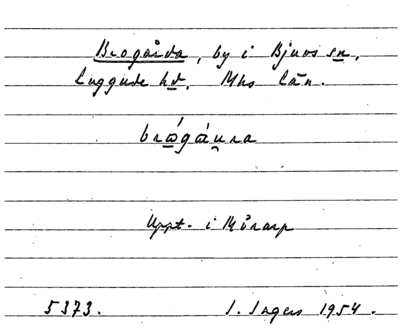 Brogårda, by i Bjuvs sn,
Luggude hd, Mhs län.
Uppt. i Mörarp
5373. I. Ingers 1954.